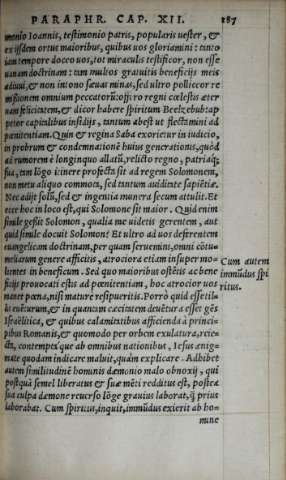 PARAPHR. CAP. XII. 187
monio Ioannis, testimonio patris, popularis uester, &
ex ijsdem ortus maioribus, quibus uos gloriamini: tanto
iam tempore doceo uos, tot miraculis testificor, non esse
uanam doctrinam: tam multos gratuitis beneficijs meis
adiuui, & non intono sæuas minas, sed ultro polliceor re
missionem omnium peccatorũ: ostẽdo regni cœlestis æter
nam felicitatem, & dicor habere spiritum Beelzebub: ap
petor capitalibus insidijs, tantum abest ut flectamini ad
pœnitentiam. Quin & regina Saba exorietur in iudicio,
in probrum & condemnationẽ huius generationis, quòd
ad rumorem è longinquo allatũ, relicto regno, patriaq́;
sua, tam lõgo itinere profecta sit ad regem Solomonem,
non metu aliquo commota, sed tantum audiẽdæ sapiẽtiæ.
Nec adijt solũ, sed & ingentia munera secum attulit. Et
ecce hoc in loco est, qui Solomone sit maior. Quid enim
simile gessit Solomon, qualia me uidetis gerentem, aut
quid simile docuit Solomon? Et ultro ad uos deferentem
euangelicam doctrinam, per quam seruemini, omni cõtu-
meliarum genere afficitis, atrociora etiam insuper mo-
lientes in beneficum. Sed quo maioribus ostẽtis ac bene
ficijs prouocati estis ad pœnitentiam, hoc atrocior uos
manet pœna, nisi mature resipueritis. Porrò quid esset il-
lis euẽturum, & in quantam cæcitatem deuẽtura esset gẽs
Israëlitica, & quibus calamitatibus afflicenda à princi-
pibus Romanis, & quomodo per orbem exulatura, reie-
cta, contemptáque ab omnibus nationibus, Iesus ænig-
mate quodam indicare maluit, quàm explicare. Adhibet
autem similitudinẽ hominis dæmonio malo obnoxij, qui
postquã semel liberatus & suæ mẽti redditus est, postea
sua culpa dæmone reuerso lõge grauius laborat, q̃ prius
laborabat. Cum spiritus, inquit, immũdus exierit ab ho-
mine
Cum autem
immũdus spi
ritus.